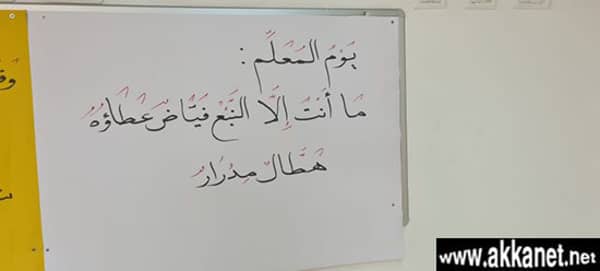 يَوْمُ المُعَلِّمِ :
مَا أَنْتَ إِلَّا النَّبْعُ فَيَّاضٌ عَطَاؤُهُ
هَطَّالٌ مِدْرَارُ
www.akkanet.net